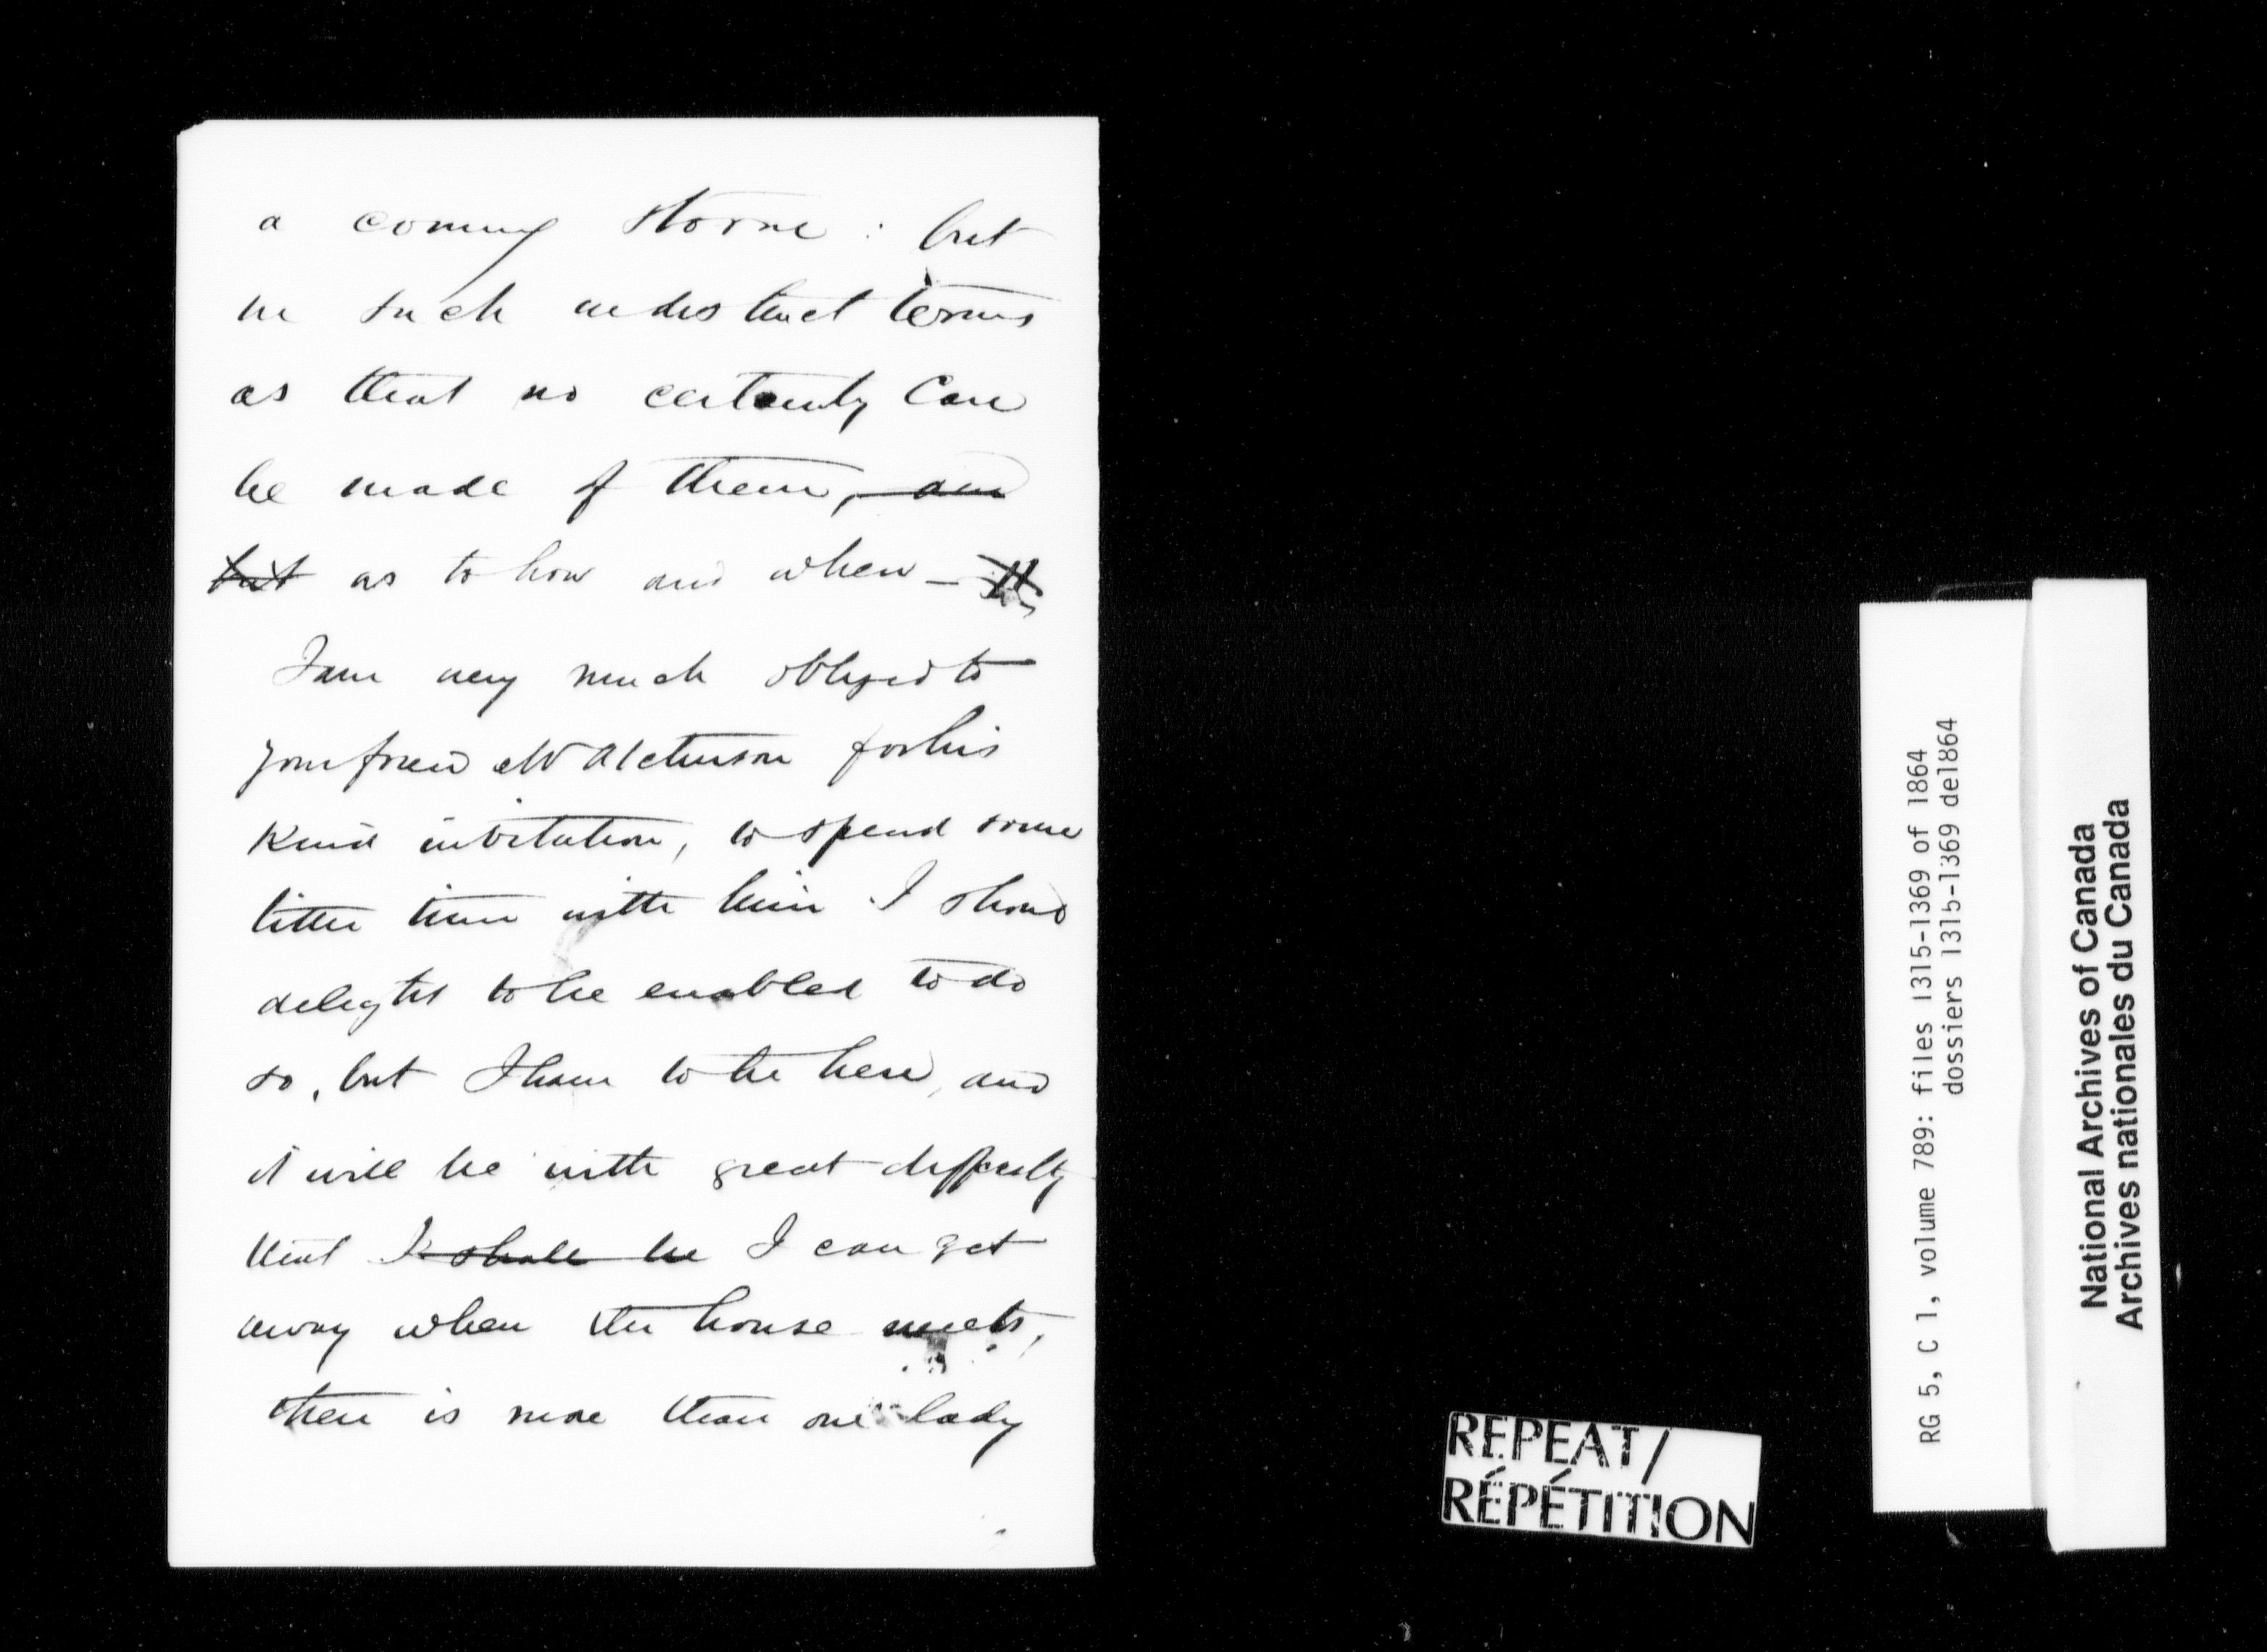 a coming storm : but
in such indistinct terms
as that no certainty can
be made of them, and
but as to how and when —
I am very much obliged to
your friend Mr Atchinson for his
kind invitation, to spend some
little time with him I should
delight to be enabled to do
so, but I have to be here, and
it will be with great difficulty
that I shall be I can get
away when the house meets,
there is more than one lady
REPEAT/
RÉPÉTITION
RG 5, C 1, volume 789: files 1315-1369 of 1864
dossiers 1315-1369 de1864
National Archives of Canada
Archives nationales du Canada